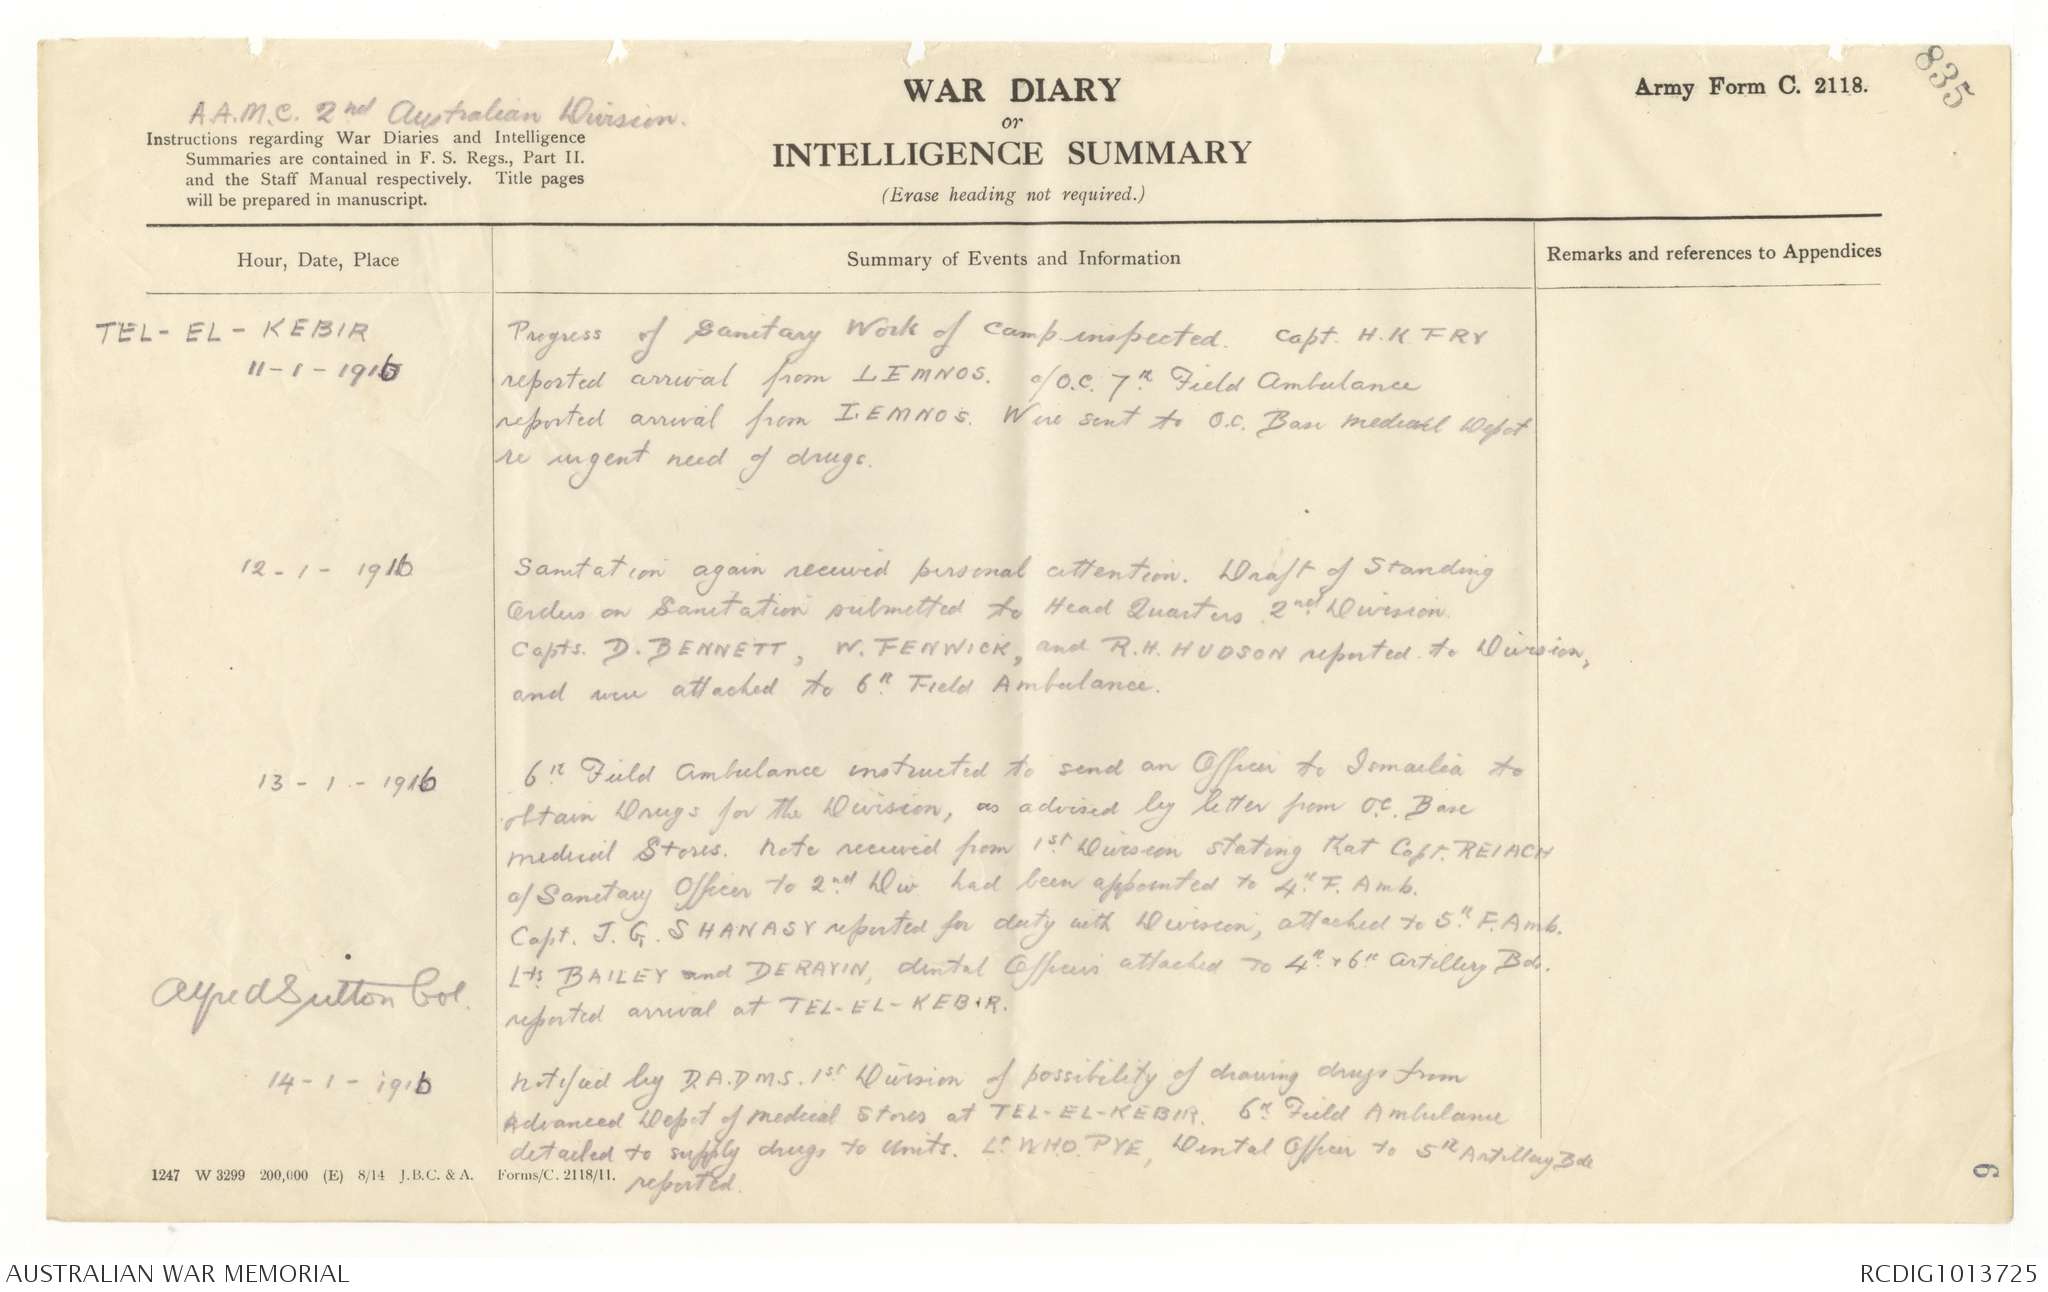 835
A.A.M.C. 2nd Australian Division.
Instructions regarding War Diaries and Intelligence
Summaries are contained in F. S. Regs., Part II.
and the Staff Manual respectively. Title pages
will be prepared in manuscript.
WAR DIARY
or
INTELLIGENCE SUMMARY
(Erase heading not required.)
Army Form C. 2118.
Hour, Date, Place
Summary of Events and Information
Remarks and references to Appendices
TEL-EL-KEBIR
11-1-1916
Progress of Sanitary Work of Camp inspected. Capt. H.K FRY
reported arrival from LEMNOS. a/O.C. 7th Field Ambulance
reported arrival from LEMNOS. Wire sent to O.C. Base medical Depot
re urgent need of drugs.
12-1-1916
Sanitation again received personal attention. Draft of Standing
Orders on Sanitation submitted to Head Quarters 2nd Division.
Capts. D. BENNETT, W. FENWICK, and R.H. HUDSON reported to Division,
and were attached to 6th Field Ambulance.
13-1-1916
6th Field Ambulance instructed to send an Officer to Ismailia to
obtain Drugs for the Division, as advised by letter from O.C. Base
medical Stores. Note received from 1st Division stating that Capt. REIACH
a/Sanitary Officer to 2nd Div. had been appointed to 4th F. Amb.
Capt. J. G. SHANASY reported for duty with Division, attached to 5th F. Amb.
Lts BAILEY and DERAVIN, dental Officers attached to 4th & 6th Artillery Bde.
reported arrival at TEL-EL-KEBIR.
Alfred Sutton Col.
14-1-1916
Notified by D.A.D.M.S. 1st Division of possibility of drawing drugs from
Advanced Depot of medical Stores at TEL-EL-KEBIR. 6th Field Ambulance
detailed to supply drugs to Units. Lt W.H.O. PYE, Dental Officer to 5th Artillery Bde
reported.
1247 W 3299 200,000 (E) 8/14 J.B.C. & A. Forms/C. 2118/11.
9
AUSTRALIAN WAR MEMORIAL
RCDIG1013725